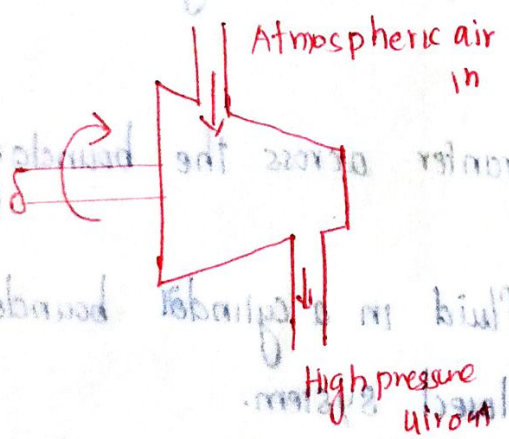 Atmospheric air
in
High pressure
air out